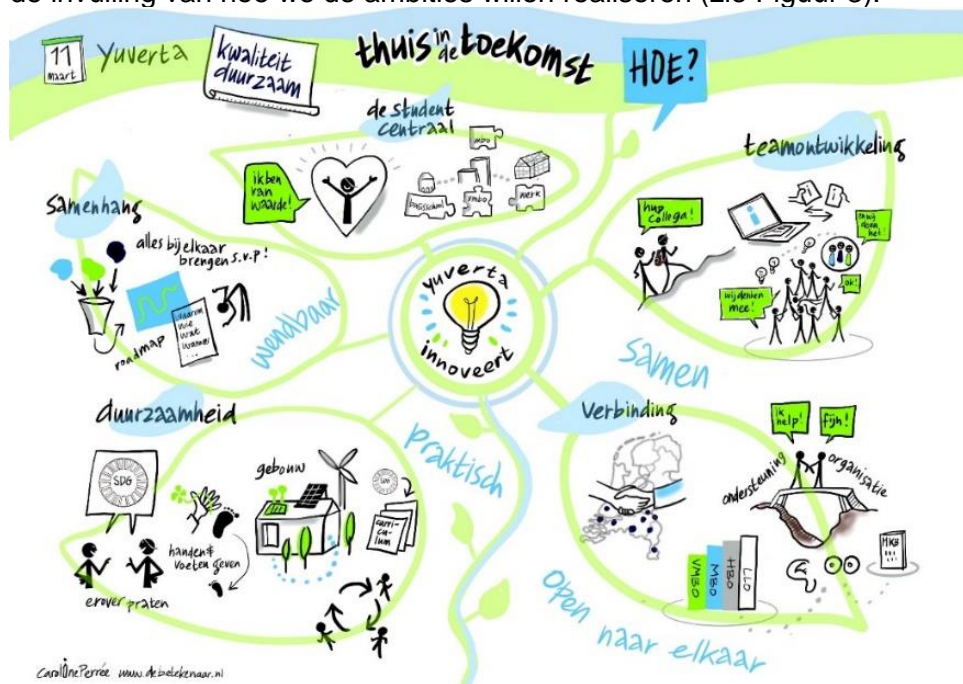 de invulling van hoe we de ambities willen realiseren (zie Figuur 3).
11
maart
yuverta
kwaliteit
duurzaam
thuis in de toekomst
HOE?
de student
centraal
ik ben
van
waarde!
basisschool
vmbo
mbo
werk
teamontwikkeling
hup
collega!
i
en wij
doen
het!
wij denken
mee!
ok!
samen
Samenhang
alles bij elkaar
brengen s.v.p!
roadmap
waarom
wie
wat
wanneer
...
wendbaar
yuverta
innoveert
duurzaamheid
SDG
erover praten
handen &
voeten geven
gebouw
curri-
cu-
lum
praktisch
Verbinding
ik
help!
fijn!
ondersteuning
organisatie
VMBO
MBO
HBO
LLO
MKB
open naar elkaar
CarolinePerrée www.debetekenaar.nl